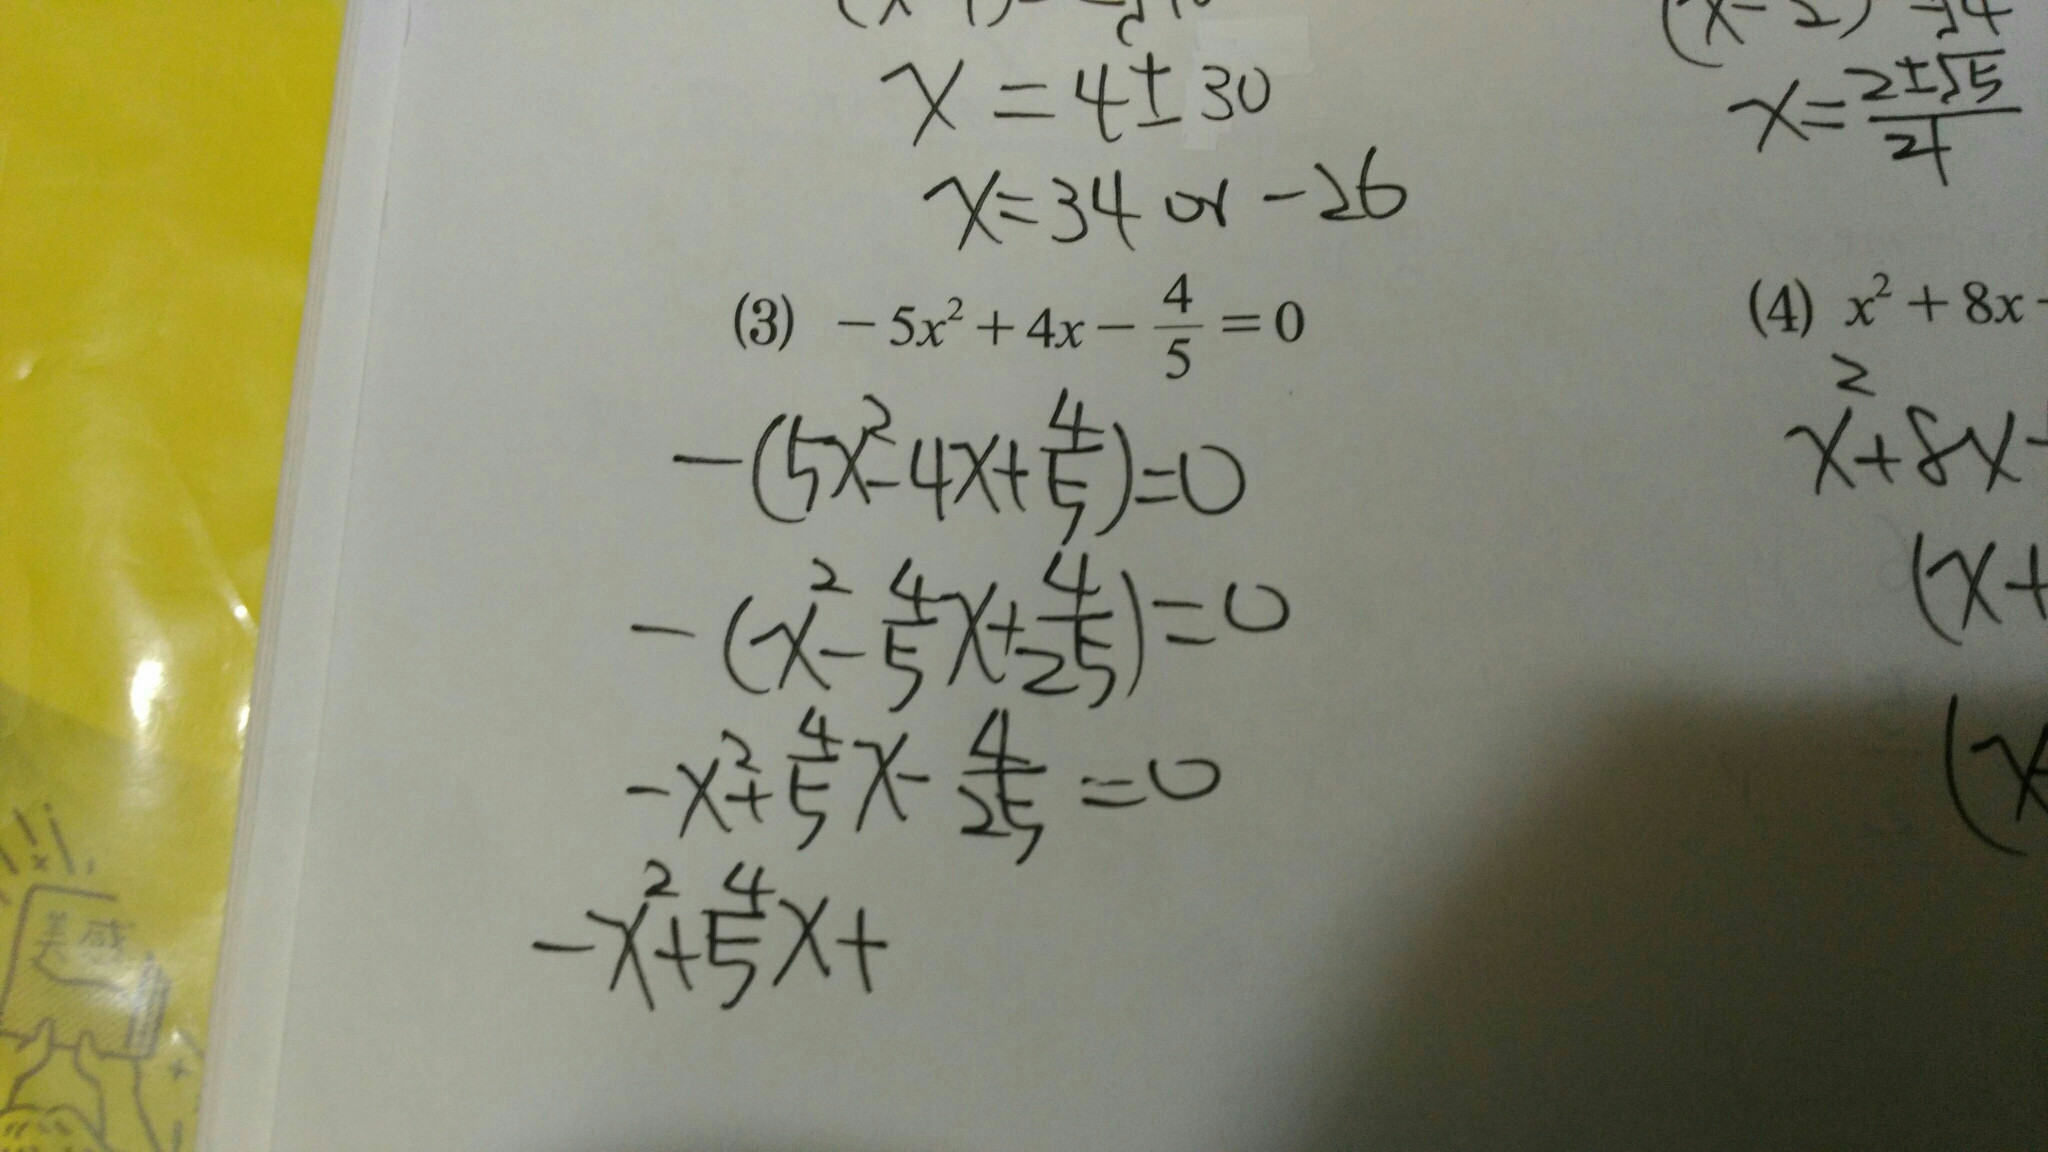 x = 4 ± 30
x = 34 or -26
x = (2 ± √5)/21
(3) -5x² + 4x - 4/5 = 0
-(5x² - 4x + 4/5) = 0
-(x² - 4/5 x + 4/25) = 0
-x² + 4/5 x - 4/25 = 0
-x² + 4/5 x +
(4) x² + 8x -
x² + 8x -
(x +
(x
美感